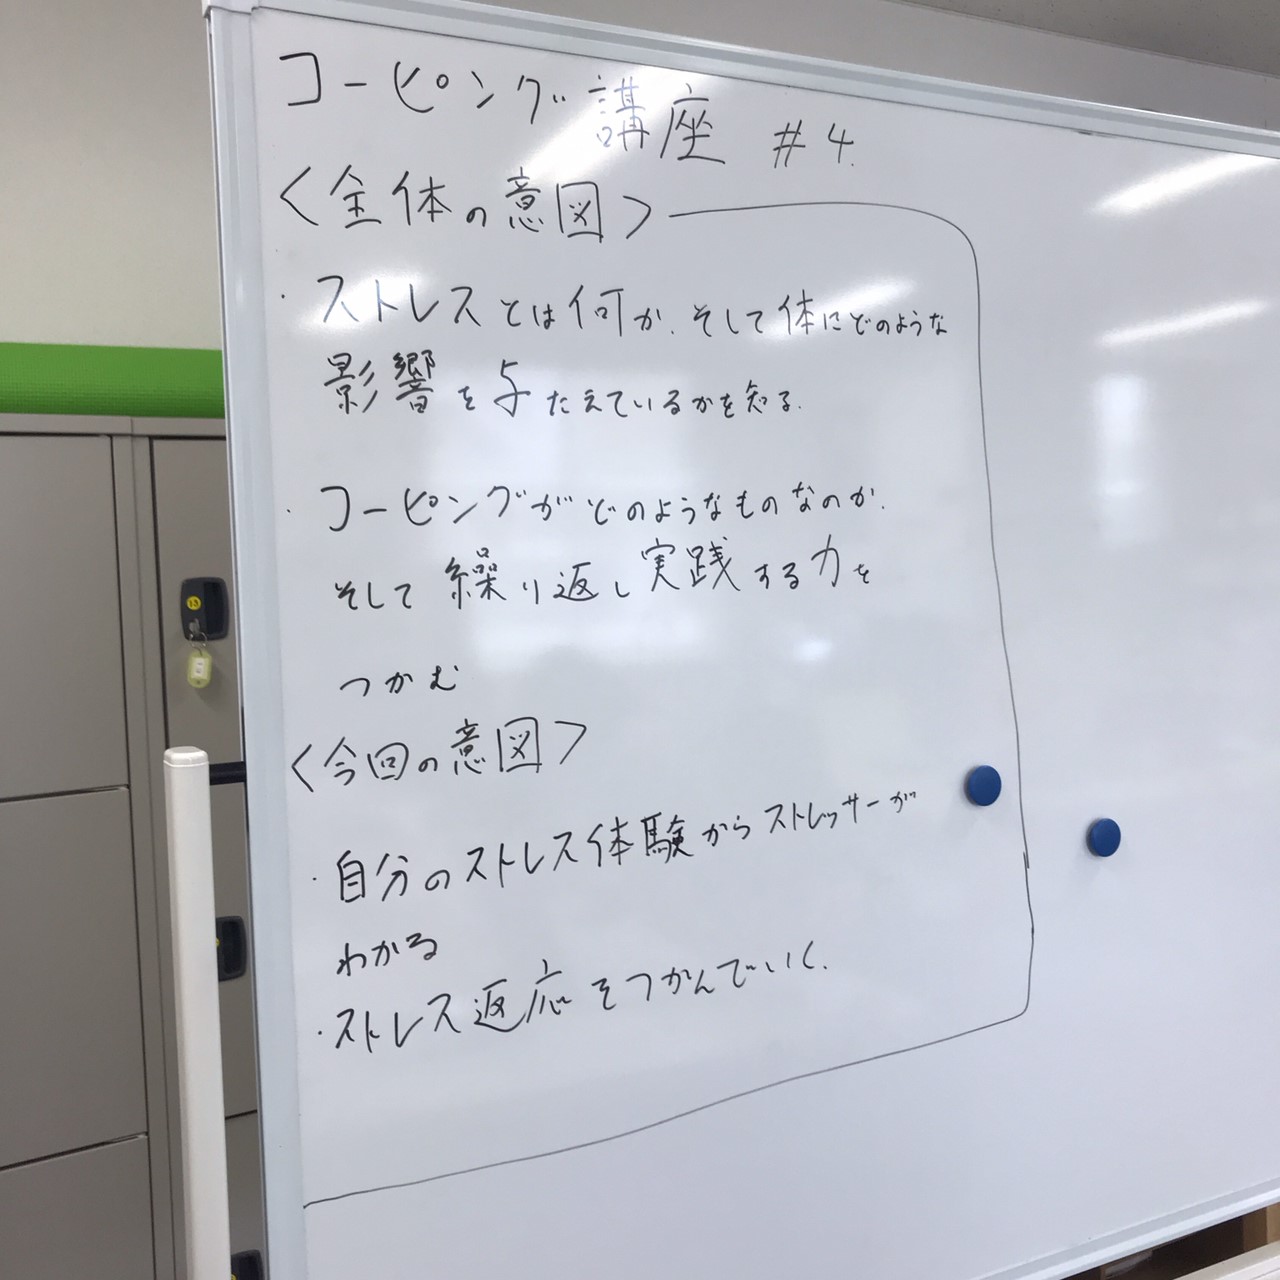 コーピング講座 #4.
<全体の意図>
・ストレスとは何か.そして体にどのような
影響を与たえているかを知る.
・コーピングがどのようなものなのか.
そして繰り返し実践する力を
つかむ
<今回の意図>
・自分のストレス体験からストレッサーが
わかる
・ストレス返応をつかんでいく.